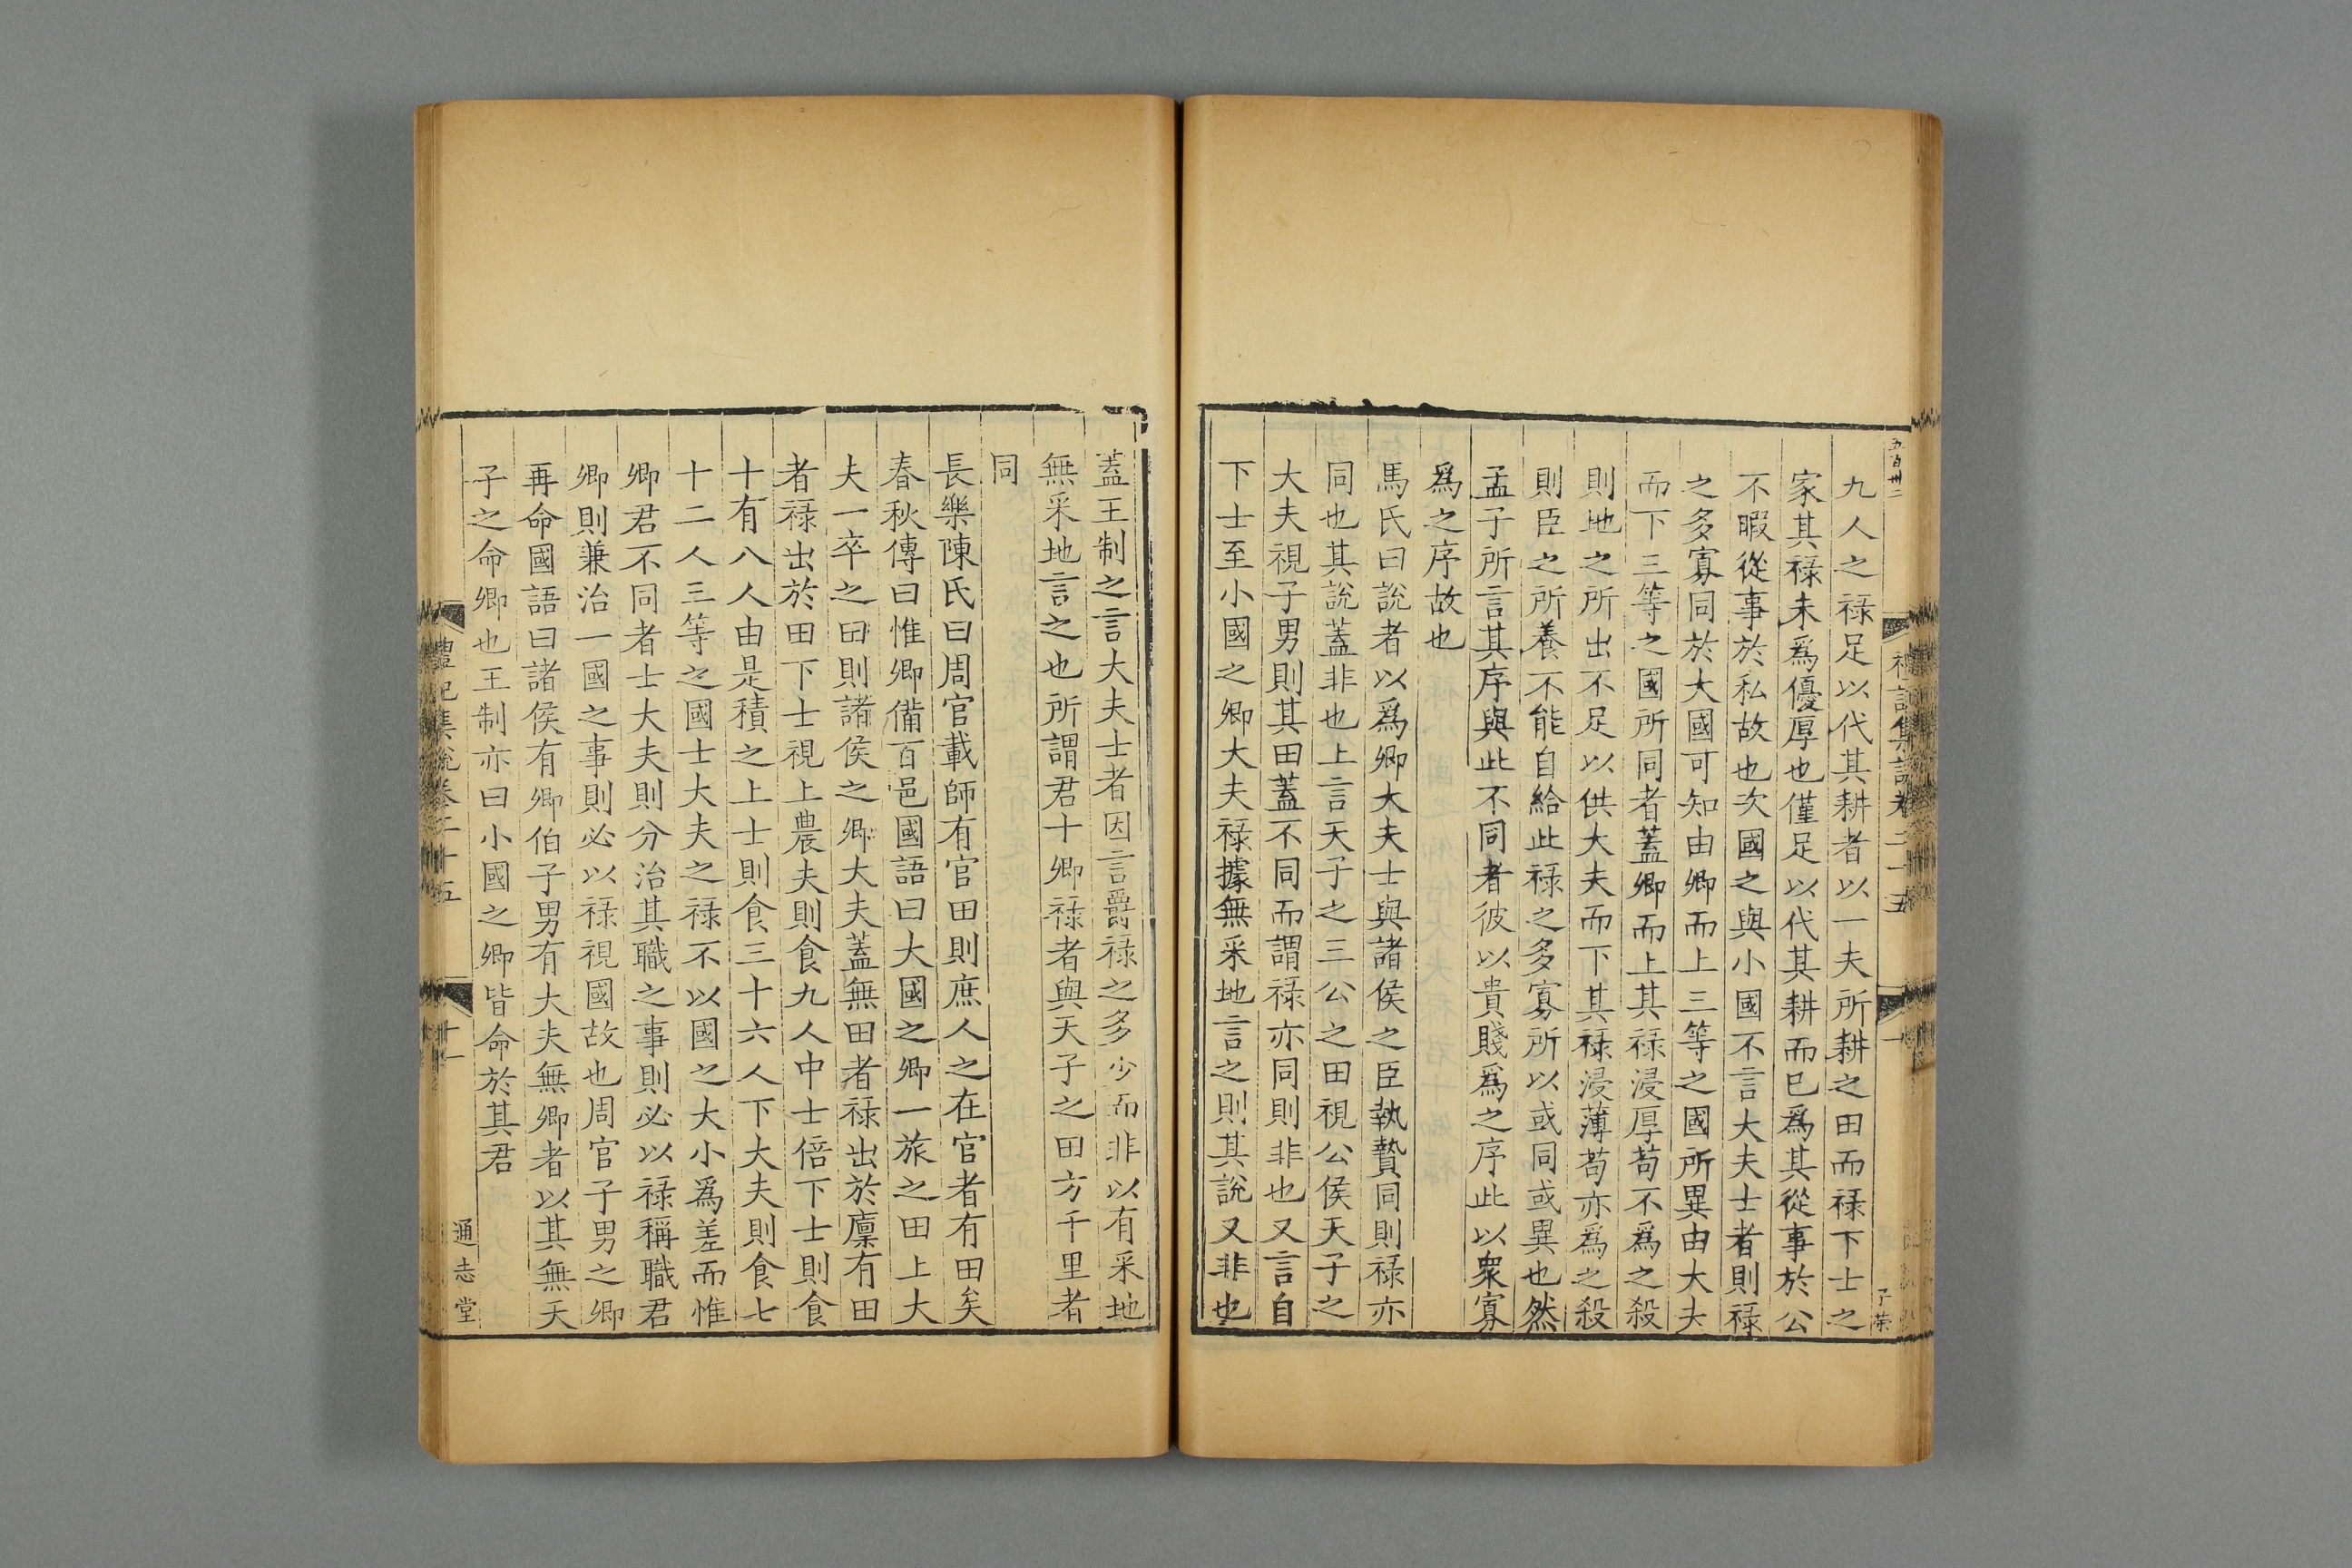 五百卅二
九人之禄足以代其耕者以一夫所耕之田而禄下士之
家其禄未爲優厚也僅足以代其耕而已爲其從事於公
不暇從事於私故也次國之與小國不言大夫士者則禄
之多寡同於大國可知由卿而上三等之國所異由大夫
而下三等之國所同者蓋卿而上其禄浸厚苟不爲之殺
則地之所出不足以供大夫而下其禄浸薄苟亦爲之殺
則臣之所養不能自給此禄之多寡所以或同或異也然
孟子所言其序與此不同者彼以貴賤爲之序此以衆寡
爲之序故也
馬氏曰說者以爲卿大夫士與諸侯之臣執贄同則禄亦
同也其說蓋非也上言天子之三公之田視公侯天子之
大夫視子男則其田蓋不同而謂禄亦同則非也又言自
下士至小國之卿大夫禄據無采地言之則其說又非也
蓋王制之言大夫士者因言爵禄之多少而非以有采地
無采地言之也所謂君十卿禄者與天子之田方千里者
同
長樂陳氏曰周官載師有官田則庶人之在官者有田矣
春秋傳曰惟卿備百邑國語曰大國之卿一旅之田上大
夫一卒之田則諸侯之卿大夫蓋無田者禄出於廩有田
者禄出於田下士視上農夫則食九人中士倍下士則食
十有八人由是積之上士則食三十六人下大夫則食七
十二人三等之國士大夫之禄不以國之大小爲差而惟
卿君不同者士大夫則分治其職之事則必以禄稱職君
卿則兼治一國之事則必以禄視國故也周官子男之卿
再命國語曰諸侯有卿伯子男有大夫無卿者以其無天
子之命卿也王制亦曰小國之卿皆命於其君
禮記集說卷二十五
十一
通志堂